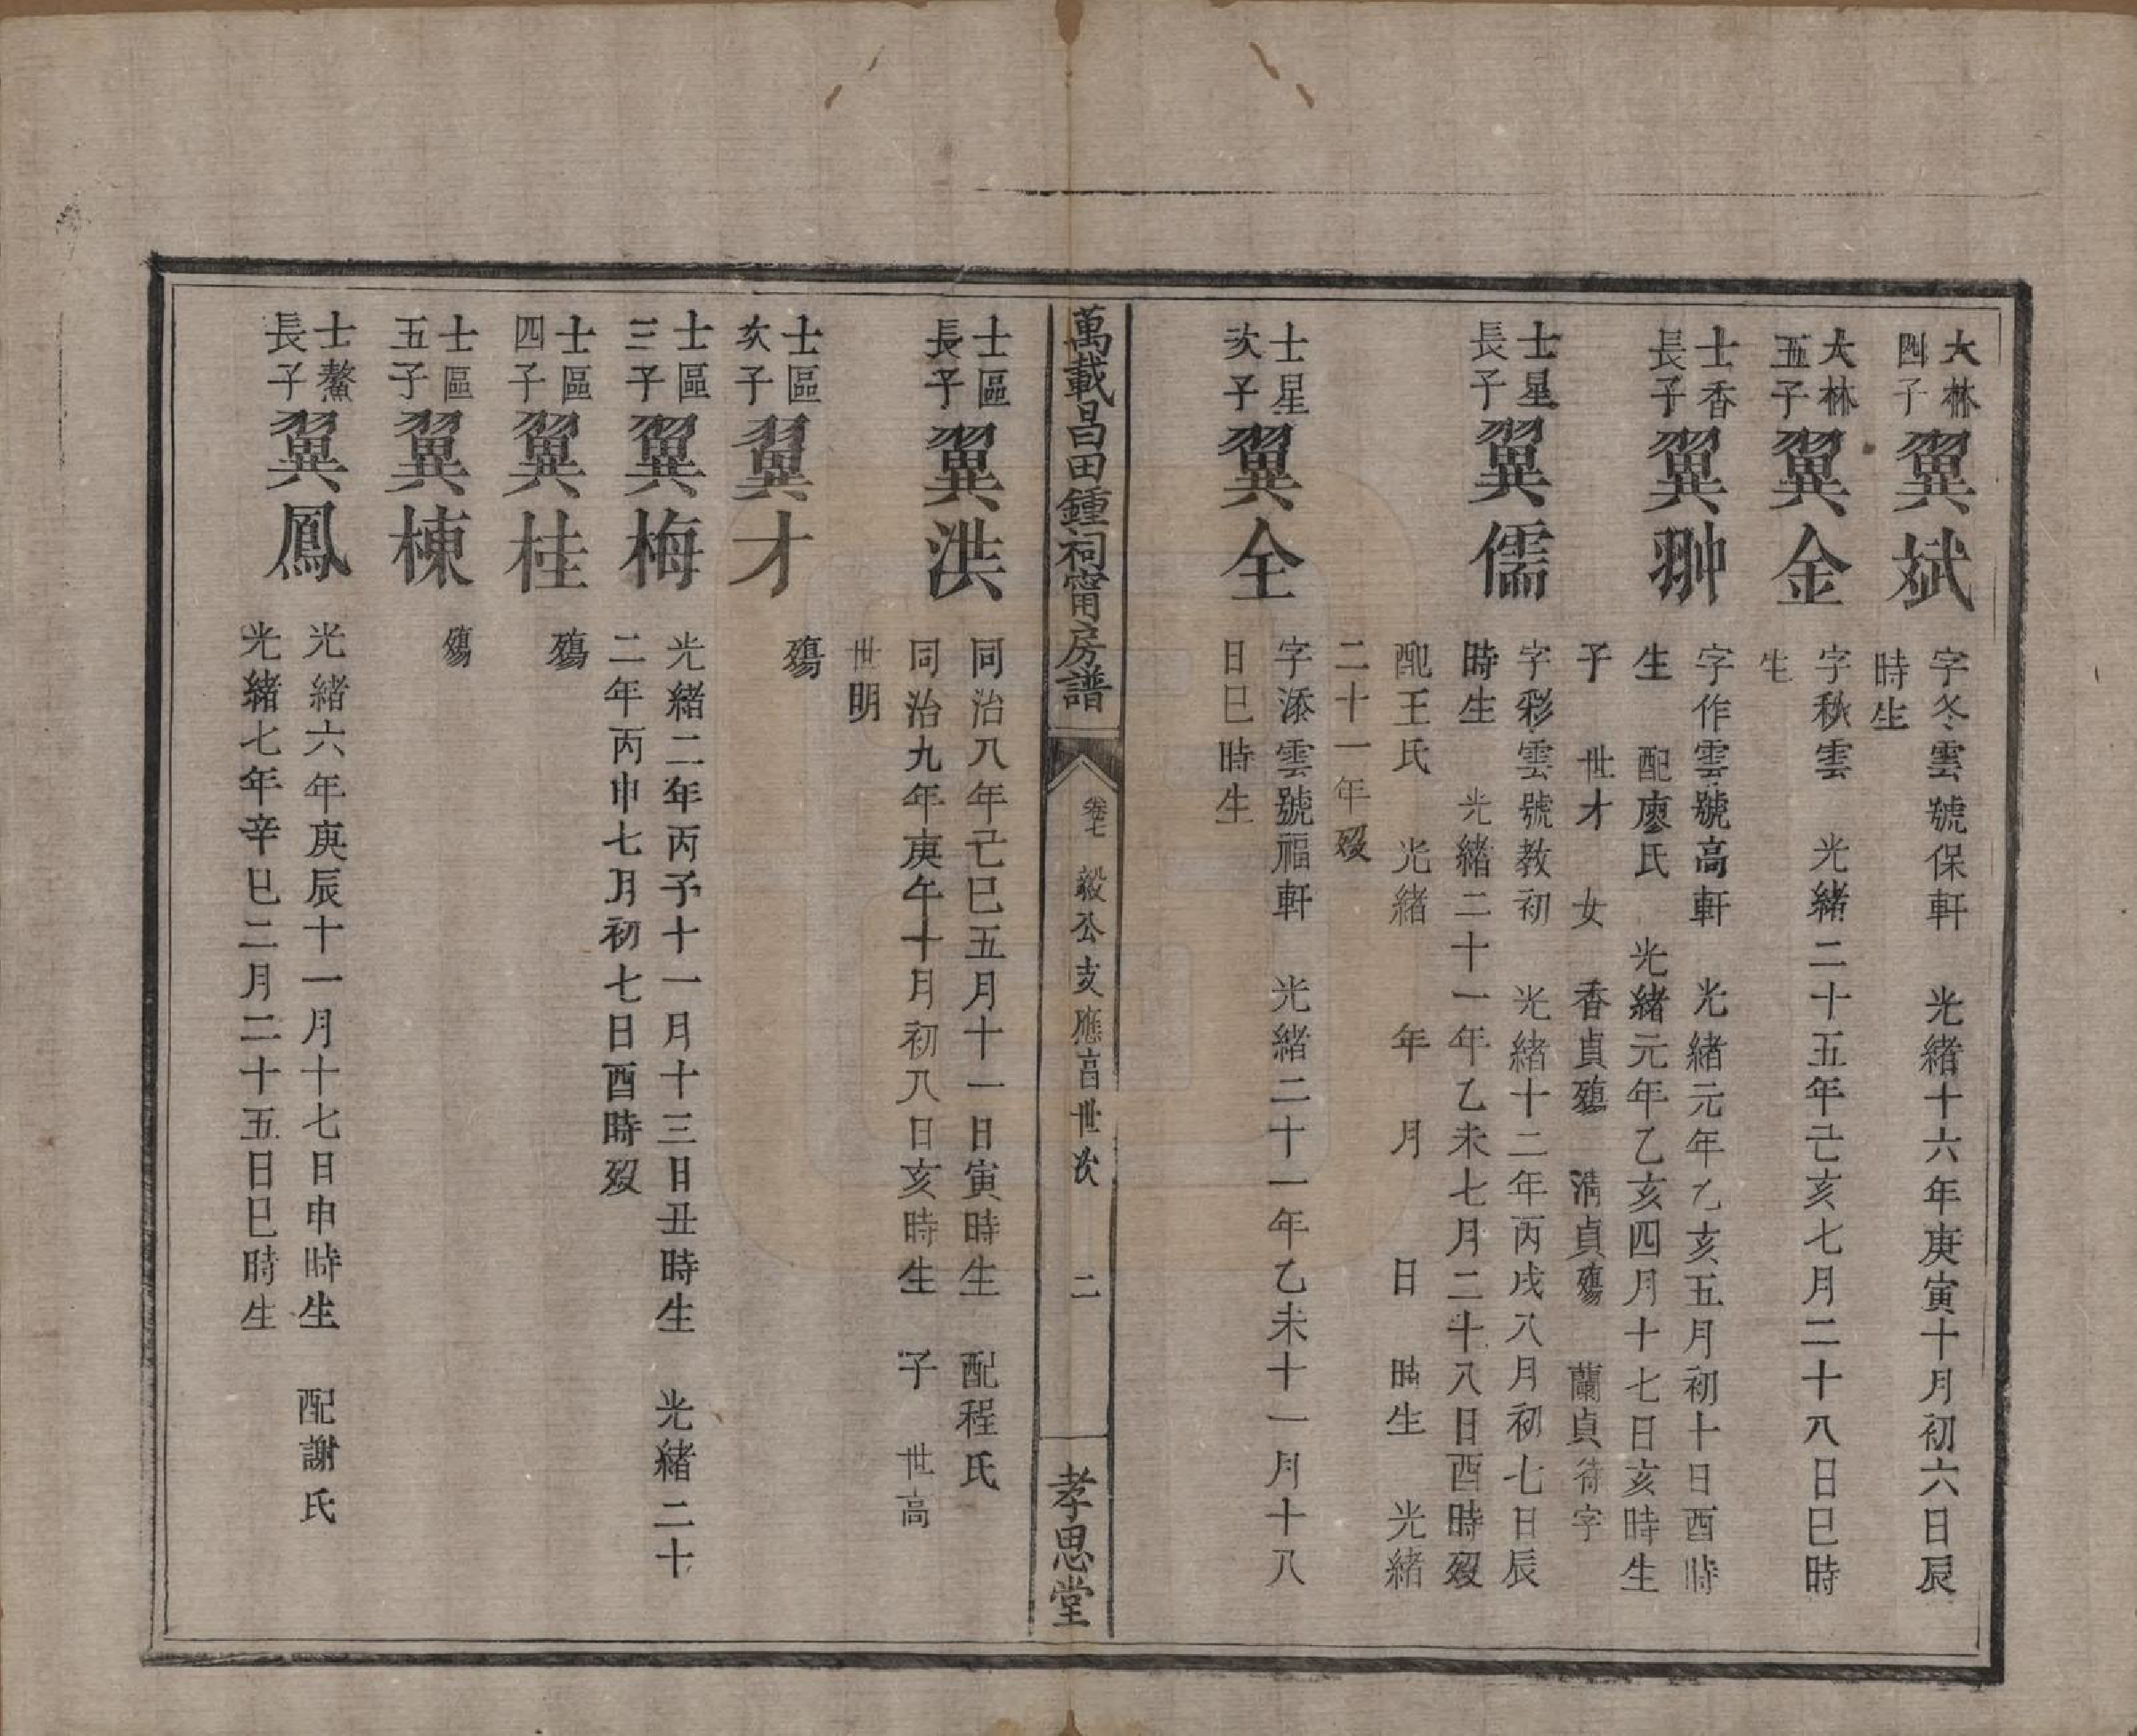 大林
四子
翼斌
字冬雲號保軒　光緒十六年庚寅十月初六日辰
時生
大林
五子
翼金
字秋雲　光緒二十五年己亥七月二十八日巳時
生
士香
長子
翼翀
字作雲號高軒　光緒元年乙亥五月初十日酉時
生　配廖氏　光緒元年乙亥四月十七日亥時生
子　世才　女　香貞殤　淸貞殤　蘭貞待字
士星
長子
翼儒
字彩雲號教初　光緒十二年丙戌八月初七日辰
時生　光緒二十一年乙未七月二十八日酉時殁
配王氏　光緒　年　月　日　時生　光緒
二十一年殁
士星
次子
翼全
字添雲號福軒　光緒二十一年乙未十一月十八
日巳時生
萬載昌田鍾祠甯房譜
卷七　毅公支應言世次　二
孝思堂
士區
長子
翼洪
同治八年己巳五月十一日寅時生　配程氏
同治九年庚午十月初八日亥時生　子　世高
世明
士區
次子
翼才
殤
士區
三子
翼梅
光緒二年丙子十一月十三日丑時生　光緒二十
二年丙申七月初七日酉時殁
士區
四子
翼桂
殤
士區
五子
翼棟
殤
士鰲
長子
翼鳳
光緒六年庚辰十一月十七日申時生　配謝氏
光緒七年辛巳二月二十五日巳時生